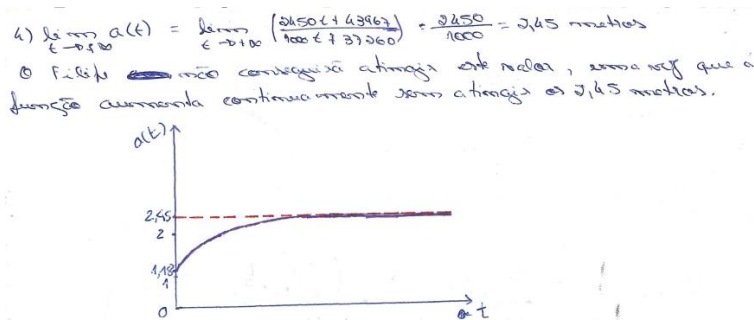 4) lim a(t) = lim (2450t + 43967 / 1000t + 37260) = 2450 / 1000 = 2,45 metros
t→+∞ t→+∞
O Filipe não conseguirá atingir este valor, uma vez que a
função aumenta continuamente sem atingir os 2,45 metros.
a(t)
2,45
2
1,18
1
0
t